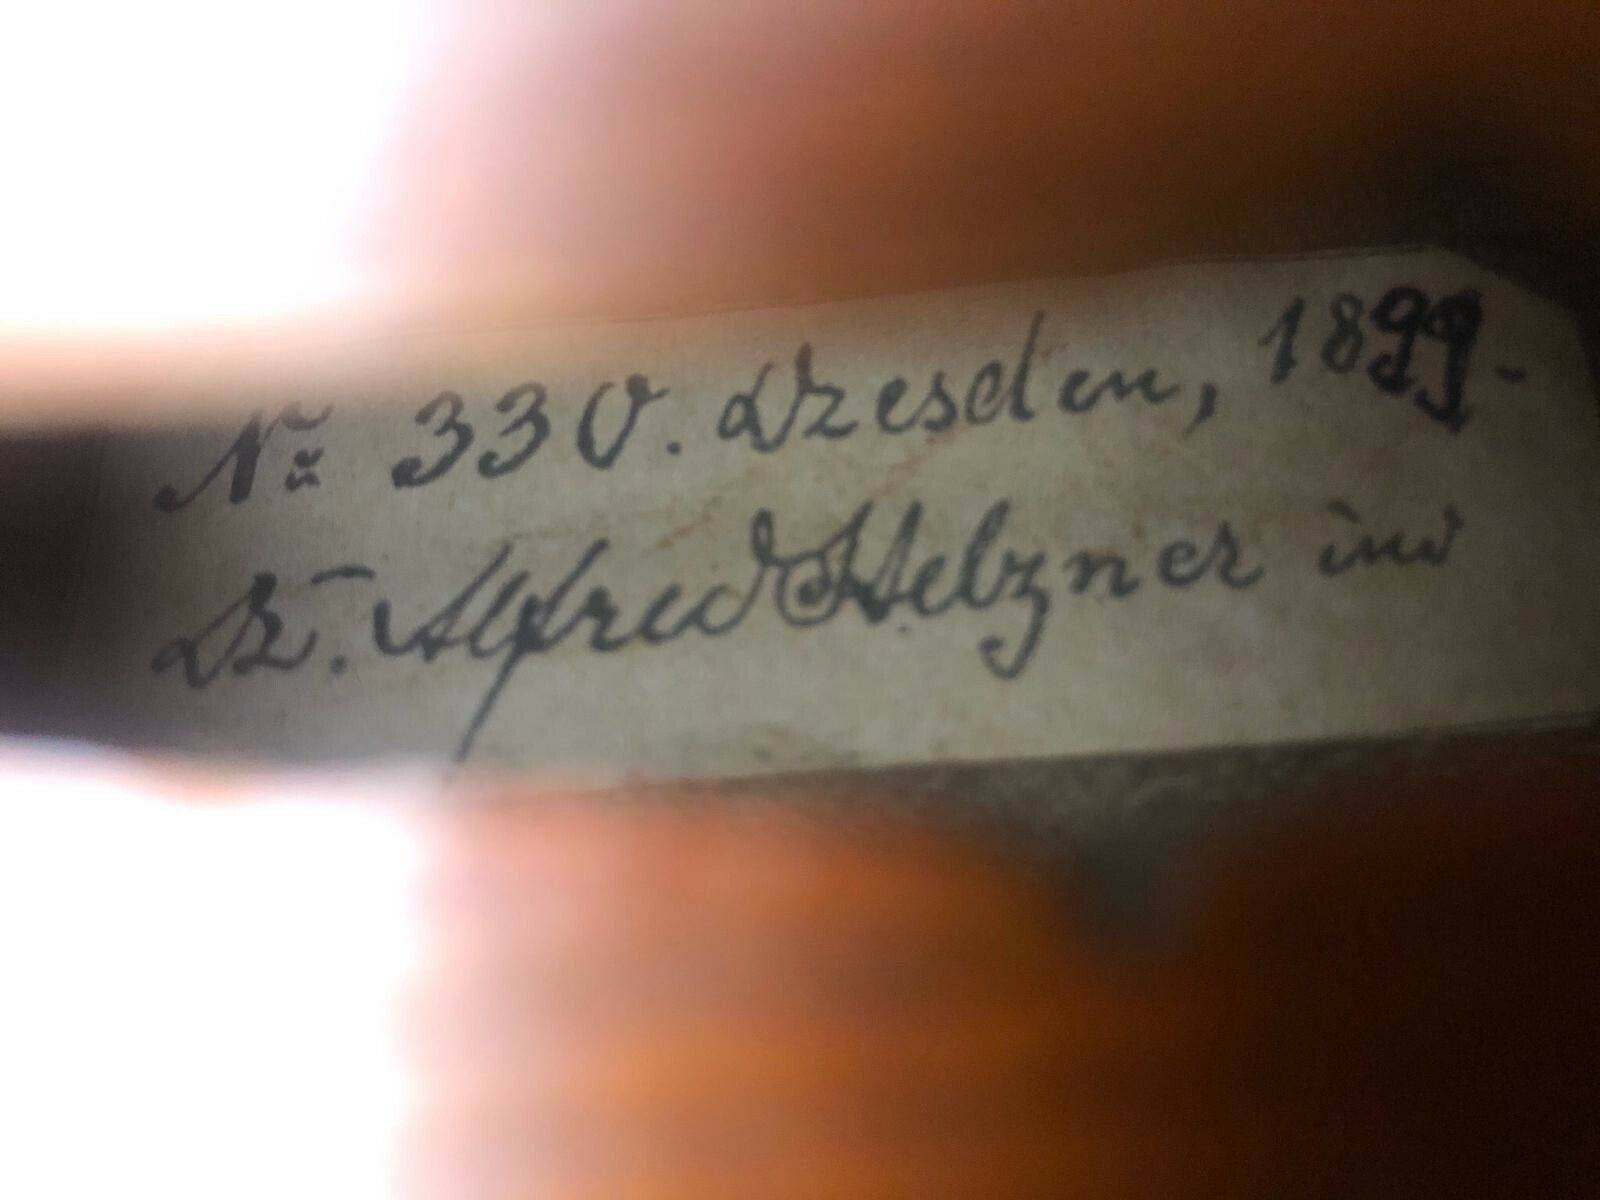 No 330. Dresden, 1899.
Dr. Alfred Stelzner ind